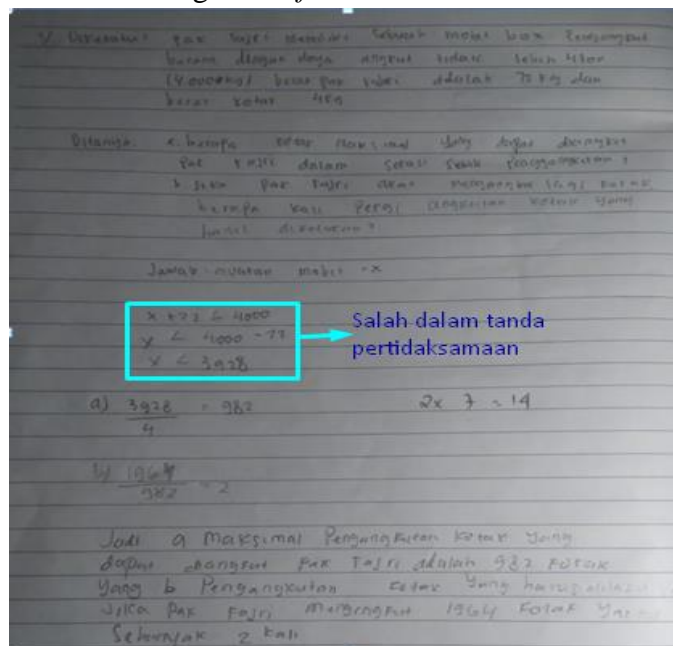 Diketahui: pak Fajri memiliki sebuah mobil box pengangkut
barang dengan daya angkut tidak lebih 4 ton
(4.000 kg) berat pak Fajri adalah 72 kg dan
berat kotak 4 kg
Ditanya: a. berapa kotak maksimal yang dapat diangkut
pak Fajri dalam sekali pengangkutan?
b. Jika pak Fajri akan mengangkut 1964 kotak
berapa kali pergi angkutan kotak yang
harus dilakukan?
Jawab muatan mobil = x
x + 72 < 4000
x < 4000 - 72
x < 3928
Salah dalam tanda
pertidaksamaan
a) 3928 = 982
4
2 x 7 = 14
b) 1964 = 2
982
Jadi a Maksimal Pengangkutan kotak yang
dapat diangkut Pak Fajri adalah 982 kotak
Yang b Pengangkutan kotak yang harus
Jika Pak Fajri mengangkut 1964 kotak
Sebanyak 2 kali